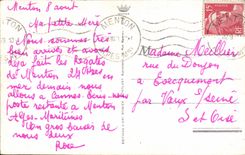 Menton 8 août
Ma petite Mère
Nous sommes très
bien arrivés et avons
déjà fait les Régates
de Menton
mer demain nous
allons à Cannes. Ecris-nous
poste restante à Menton
Alpes-Maritimes
Bons gros baisers de
nous deux
Rose
MENTON
Madame Médlier
rue du Donjon
à Ecquemont
par Vaux s/Seine
S et Oise